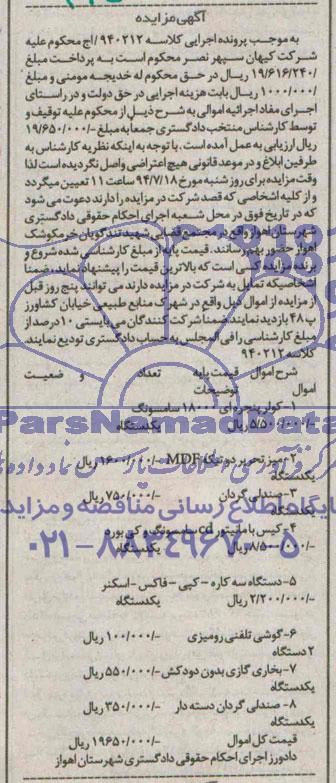 آگهی مزایده
به موجب پرونده اجرایی کلاسه ۹۴۰۲۱۲/اج محکوم علیه
شرکت کیهان سپهر نصر محکوم است به پرداخت مبلغ
۱۹/۶۱۶/۲۴۰/ ریال در حق محکوم له خدیجه مومنی و مبلغ
۱/۰۰۰/۰۰۰/ ریال بابت هزینه اجرایی در حق دولت و در راستای
اجرای مفاد اجرائیه اموالی به شرح ذیل از محکوم علیه توقیف و
توسط کارشناس منتخب دادگستری جمعا به مبلغ -/۱۹/۶۵۰/۰۰۰
ریال ارزیابی به عمل آمده است. با توجه به اینکه نظریه کارشناس به
طرفین ابلاغ و در موعد قانونی هیچ اعتراضی واصل نگردیده است لذا
وقت مزایده برای روز شنبه مورخ ۹۴/۷/۱۸ ساعت ۱۱ تعیین میگردد
و از کلیه اشخاصی که قصد شرکت در مزایده را دارند دعوت می شود
که در تاریخ فوق در محل شعبه اجرای احکام حقوقی دادگستری
شهرستان اهواز واقع در مجتمع قضایی شهید تندگویان خرمکوشک
اهواز حضور بهم رسانند. قیمت پایه از مبلغ کارشناسی شده شروع و
برنده مزایده کسی است که بالاترین قیمت را پیشنهاد نماید، ضمنا
اشخاصیکه تمایل به شرکت در مزایده دارند می توانند پنج روز قبل
از مزایده از اموال قبل واقع در شهرک منابع طبیعی خیابان کشاورز
پ ۴۸ بازدید نمایند، ضمنا شرکت کنندگان می بایستی ۱۰ درصد از
مبلغ کارشناسی را فی المجلس به حساب دادگستری تودیع نمایند.
کلاسه ۹۴۰۲۱۲
شرح اموال قیمت پایه تعداد و وضعیت
اموال توضیحات
۱- کولر پنجره ای ۱۸۰۰۰ سامسونگ
-/۵/۵۰۰/۰۰۰ ریال یکدستگاه
ParsNamadData
۲- میز تحریر دو تیکه MDF -/۱۶۰۰/۰۰۰ ریال
یکدستگاه
۳- صندلی گردان -/۷۵۰/۰۰۰ ریال
یکدستگاه
پایگاه اطلاع رسانی مناقصه و مزایده
۴- کیس با مانیتور cd سامسونگ و کی بورد
-/۸/۵۰۰/۰۰۰ ریال یکدستگاه
۰۲۱-۸۸۳۴۹۶۷۰-۵
۵- دستگاه سه کاره - کپی - فاکس - اسکنر
-/۲/۲۰۰/۰۰۰ ریال یکدستگاه
۶- گوشی تلفنی رومیزی -/۱۰۰/۰۰۰ ریال
۲ دستگاه
۷- بخاری گازی بدون دودکش -/۵۵۰/۰۰۰ ریال
یکدستگاه
۸- صندلی گردان دسته دار -/۳۵۰/۰۰۰ ریال
یکدستگاه
قیمت کل اموال -/۱۹۶۵۰/۰۰۰ ریال
دادورز اجرای احکام حقوقی دادگستری شهرستان اهواز